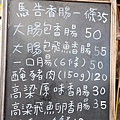 馬告香腸一條35
大腸包香腸 50
大腸包飛魚香腸 55
一口腸(6個) 50
醃豬肉(150g)120
高粱原味香腸 30
高粱飛魚卵香腸 35